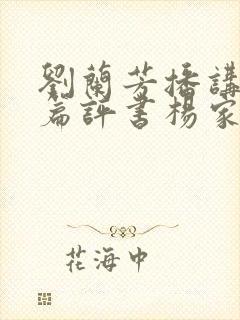 劉蘭芳播講
篇評書楊家
花海中